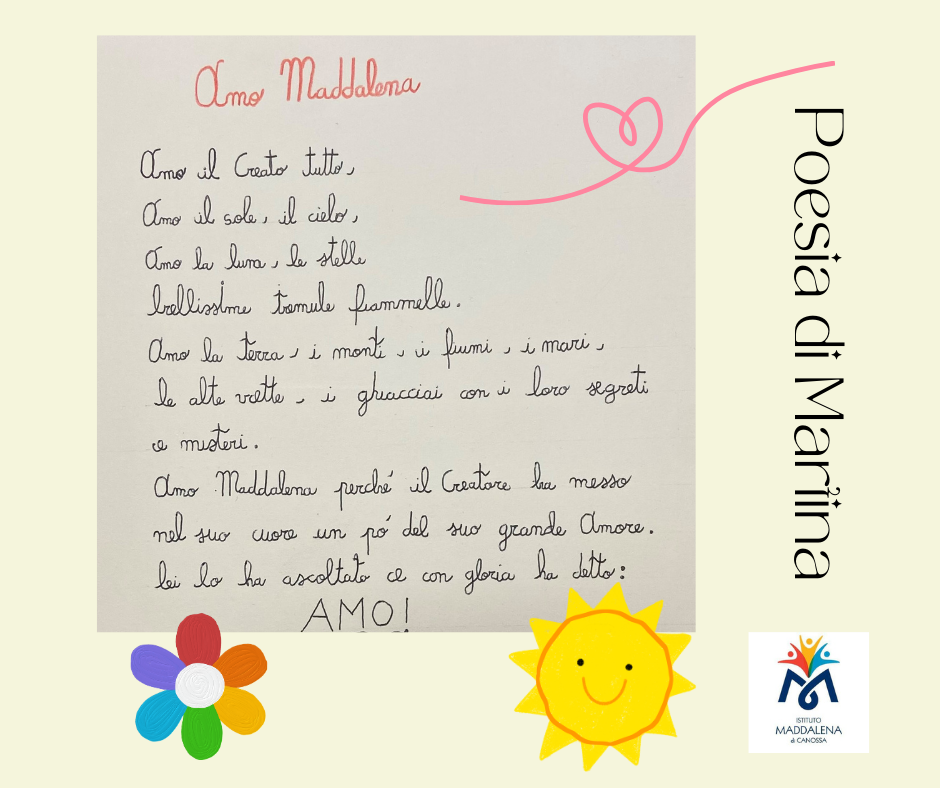 Amo Maddalena
Amo il Creato tutto,
Amo il sole, il cielo,
Amo la luna, le stelle
bellissime tremule fiammelle.
Amo la terra, i monti, i fiumi, i mari,
le alte vette, i ghiacciai con i loro segreti
e misteri.
Amo Maddalena perché il Creatore ha messo
nel suo cuore un pó del suo grande Amore.
lei lo ha ascoltato e con gloria ha detto:
AMO!
Poesia di Martina
ISTITUTO
MADDALENA
di CANOSSA